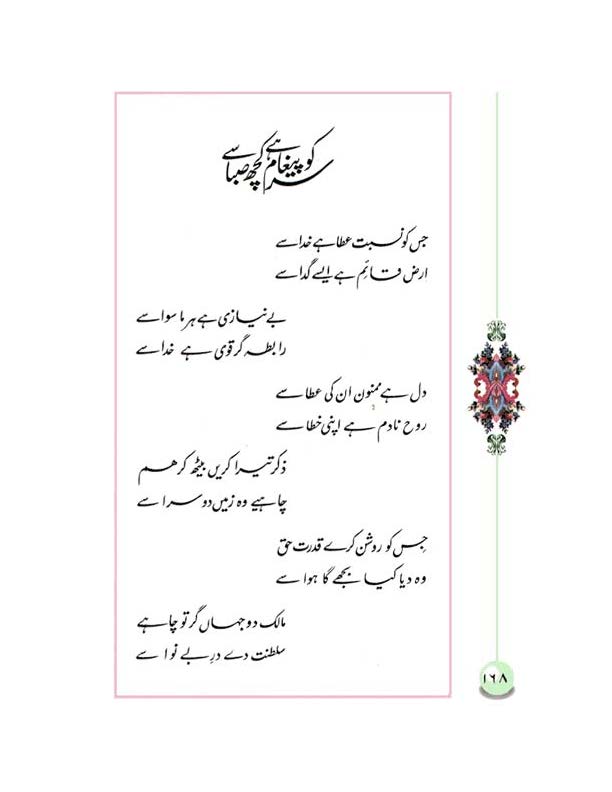 سر کو پیغام ہے کچھ صبا سے
جس کو نسبت عطا ہے خدا سے
ارض قائم ہے ایسے گدا سے
بے نیازی ہے ہر ما سوا سے
رابطہ گر قوی ہے خدا سے
دل ہے ممنون ان کی عطا سے
روح نادم ہے اپنی خطا سے
ذکر تیرا کریں بیٹھ کر ھم
چاہیے وہ زمیں دوسرا سے
جِس کو روشن کرے قدرت حق
وہ دیا کیا بجھے گا ہوا سے
مالک دو جہاں گر تو چاہے
سلطنت دے درِ بے نوا سے
۱۶۸